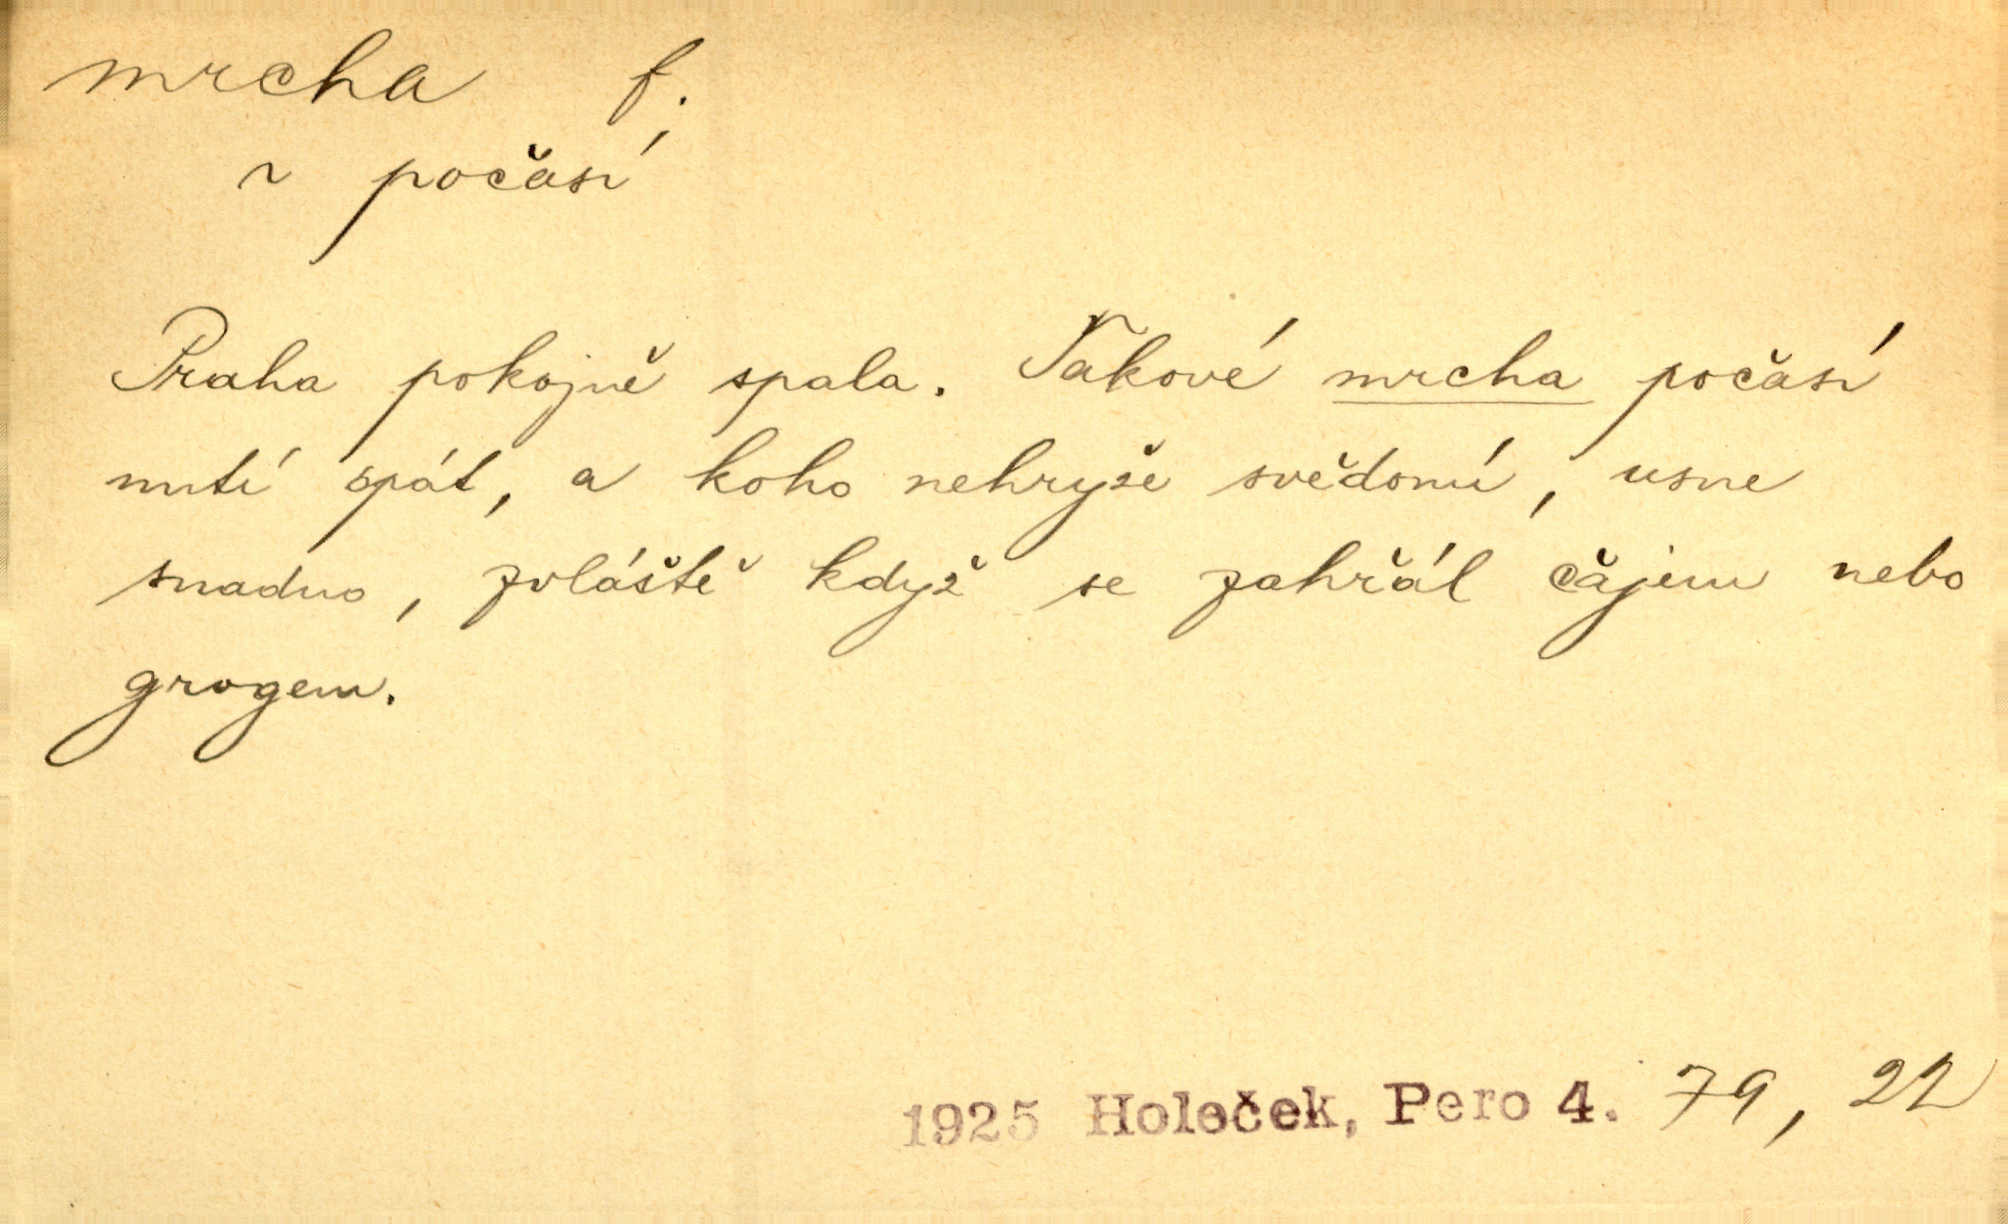 mrcha f.
~ počasí
Praha pokojně spala. Takové mrcha počasí
nutí spát, a koho nehryže svědomí, usne
snadno, zvláště když se zahřál čajem nebo
grogem.
1925 Holeček, Pero 4. 79, 22